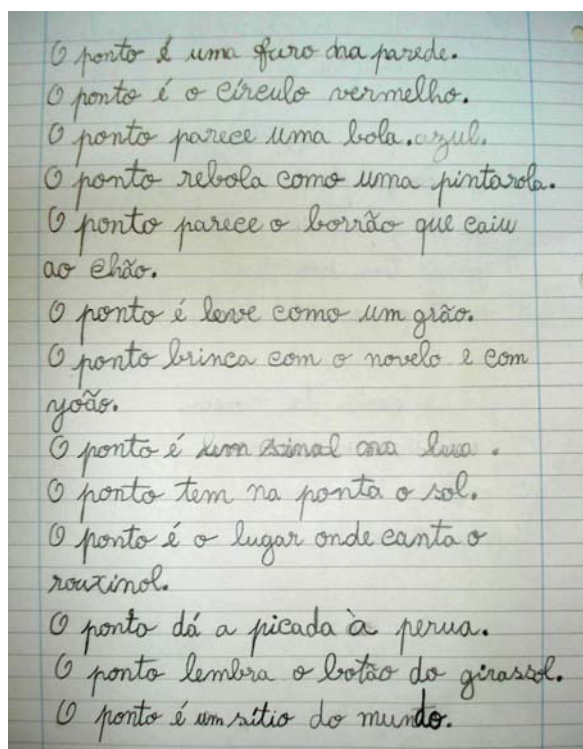 O ponto é uma furo na parede.
O ponto é o círculo vermelho.
O ponto parece uma bola.azul.
O ponto rebola como uma pintarola.
O ponto parece o borrão que caiu
ao chão.
O ponto é leve como um grão.
O ponto brinca com o novelo e com
yoão.
O ponto é um sinal na lua.
O ponto tem na ponta o sol.
O ponto é o lugar onde canta o
rouxinol.
O ponto dá a picada à perua.
O ponto lembra o botão do girassol.
O ponto é um sítio do mundo.